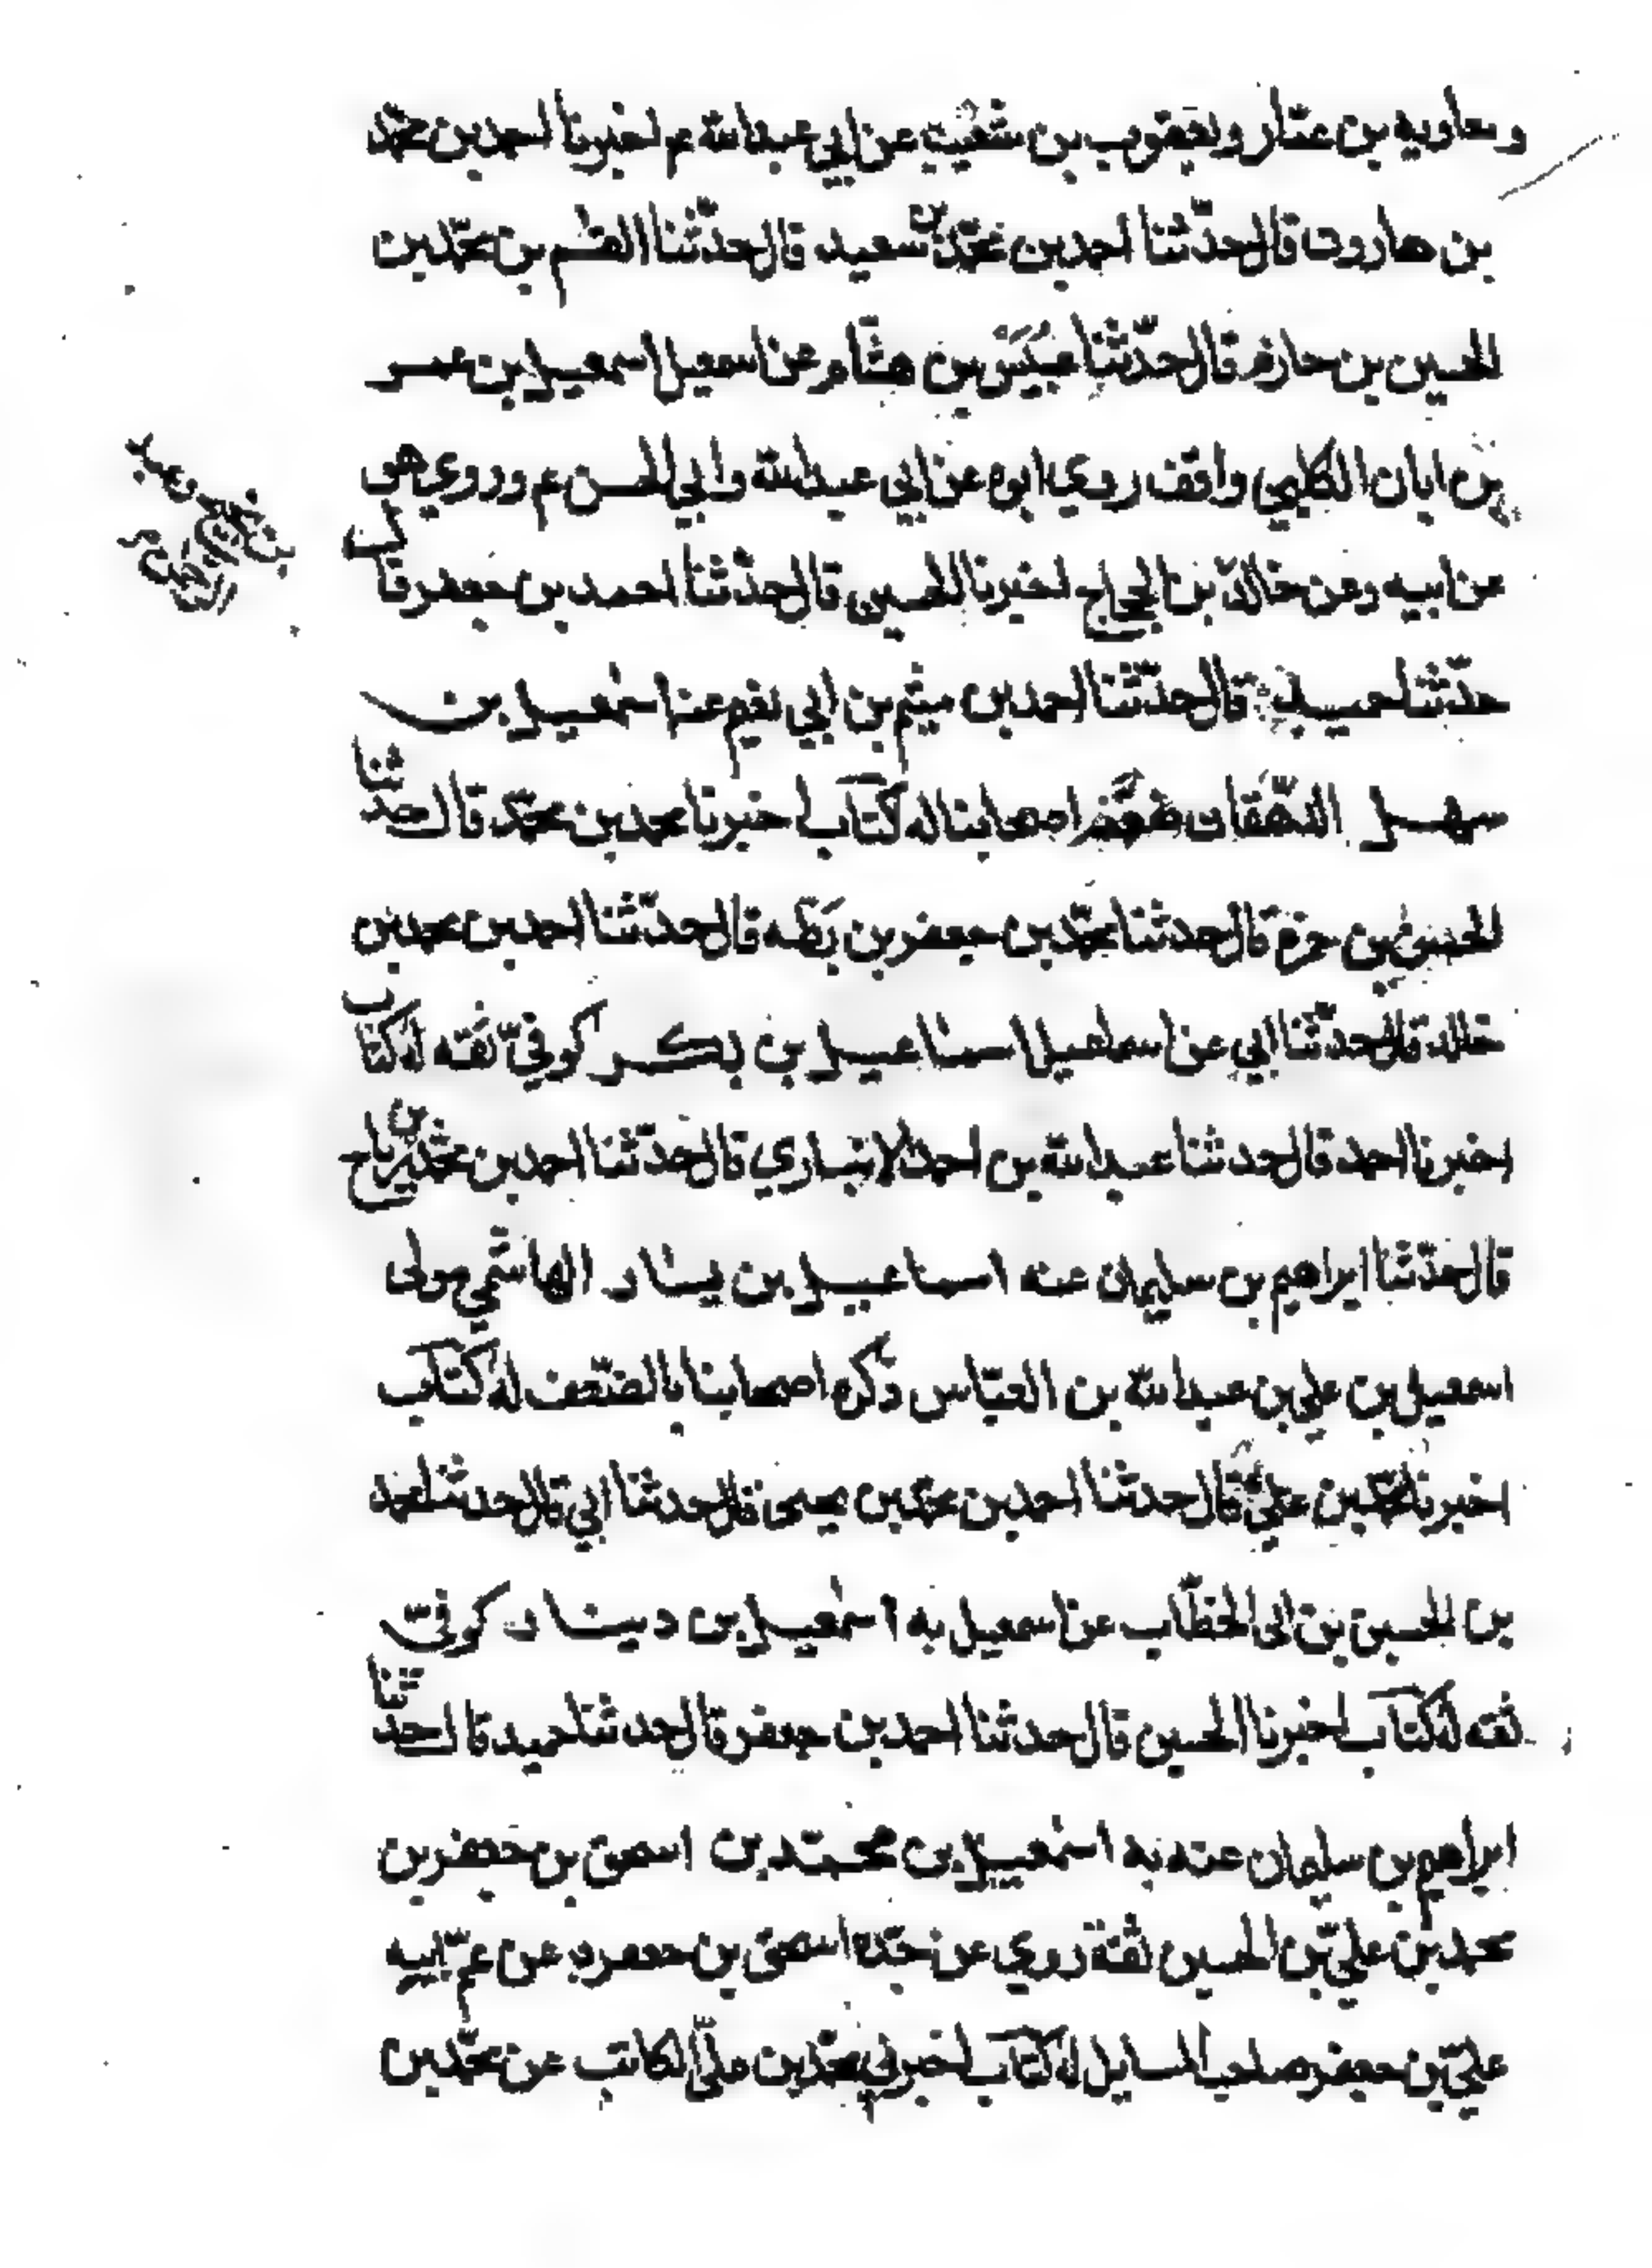 ومعاويه بن عمّار ويعقوب بن شعيب عن ابي عبدالله ع م اخبرنا احمد بن محمّد
بن هارون قال حدّثنا احمد بن محمّد بن سعيد قال حدّثنا القسم بن محمّد بن
الحسين بن حازم قال حدّثنا عبيس بن هشام عن اسمعيل اسمعيل بن عمر
بن ابان الكلبي واقف روي ابوه عن ابي عبدالله وابي الحسن ع م وروي هو
عن ابيه وعن خالد بن الحجاج اخبرنا الحسين قال حدّثنا احمد بن جعفر قال
حدّثنا حميد قال حدّثنا احمد بن ميثم بن ابي نعيم عنه اسمعيل بن
سهل الدهقان ضعّفه اصحابنا له كتاب اخبرنا محمد بن محمّد قال حدثنا
الحسن بن حمزة قال حدثنا محمّد بن جعفر بن بطّه قال حدّثنا احمد بن محمد بن
خالد قال حدّثنا ابي عن اسماعيل اسماعيل بن بكر كوفيّ ثقه له كتاب
اخبرنا احمد قال حدثنا عبدالله بن احمد الانباري قال حدّثنا احمد بن محمد بن رباح
قال حدّثنا ابراهيم بن سليمان عنه اسماعيل بن يسار الهاشمي مولى
اسمعيل بن علي بن عبدالله بن العبّاس ذكره اصحابنا بالضعف له كتاب
اخبرنا محمّد بن علي قال حدثنا احمد بن محمد بن يحيى قال حدثنا ابي قال حدثنا محمد
بن الحسين بن ابى الخطّاب عن اسمعيل به اسمعيل بن دينار كوفيّ
ثقه له كتاب اخبرنا الحسين قال حدثنا احمد بن جعفر قال حدثنا حميد قال حدّثنا
ابراهيم بن سليمان عنه به اسمعيل بن محمّد بن اسحق بن جعفر بن
محمد بن عليّ بن الحسين ثقة روي عن جدّه اسحق بن جعفر وعن عمّ ابيه
عليّ بن جعفر صاحب المسايل له كتاب اخبرني محمّد بن عليّ الكاتب عن محمّد بن